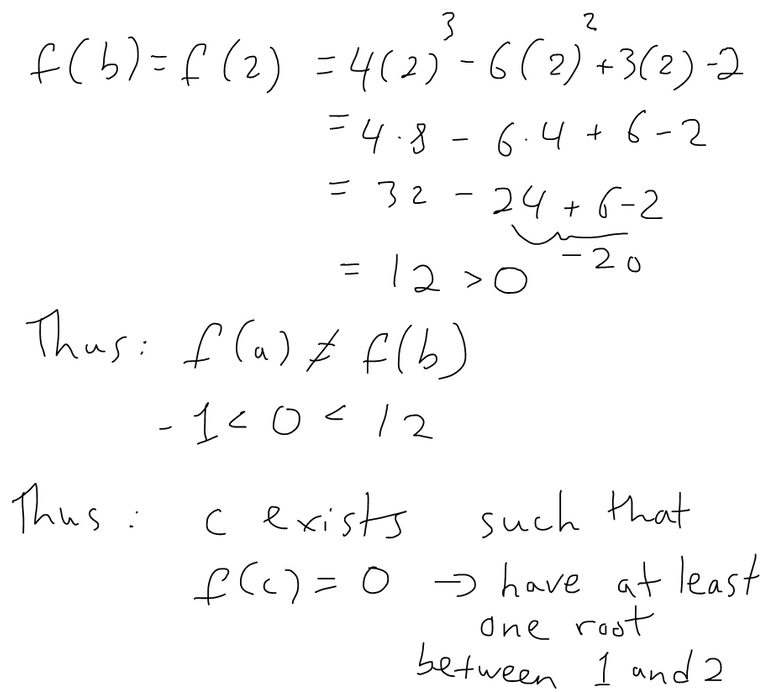 f(b) = f(2) = 4(2)³ - 6(2)² + 3(2) - 2
= 4 · 8 - 6 · 4 + 6 - 2
= 32 - 24 + 6 - 2
-20
= 12 > 0
Thus: f(a) ≠ f(b)
-1 < 0 < 12
Thus: c exists such that
f(c) = 0 → have at least
one root
between 1 and 2